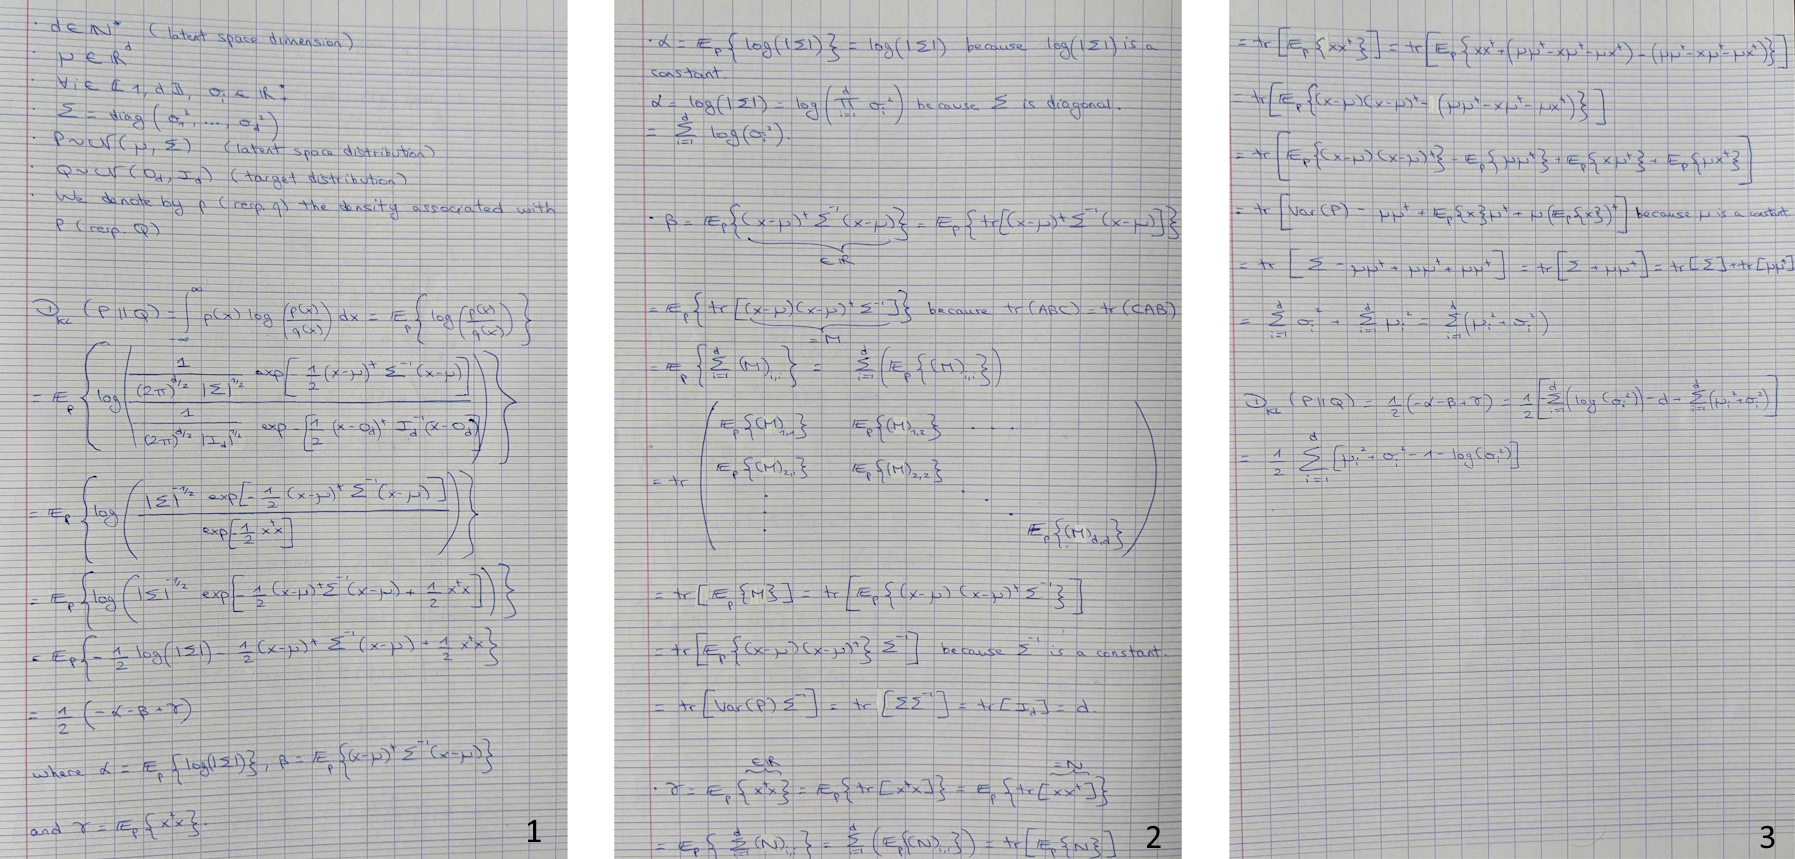 · d ∈ ℕ* (latent space dimension)
· μ ∈ ℝ^d
· ∀i ∈ ⟦1, d⟧, σ_i ∈ ℝ*₊
· Σ = diag(σ₁², ..., σ_d²)
· P ~ 𝒩(μ, Σ) (latent space distribution)
· Q ~ 𝒩(0_d, I_d) (target distribution)
· We denote by p (resp. q) the density associated with
P (resp. Q)
D_KL (P || Q) = ∫_{-∞}^{∞} p(x) log(p(x)/q(x)) dx = E_P{log(p(x)/q(x))}
= E_P{log( (1/((2π)^{d/2} |Σ|^{1/2}) exp[-1/2 (x-μ)^t Σ^{-1} (x-μ)]) / (1/((2π)^{d/2} |I_d|^{1/2}) exp-[1/2 (x-0_d)^t I_d^{-1} (x-0_d)]) )}
= E_P{log( |Σ|^{-1/2} exp[-1/2 (x-μ)^t Σ^{-1} (x-μ)] / exp[-1/2 x^t x] )}
= E_P{log( |Σ|^{-1/2} exp[-1/2 (x-μ)^t Σ^{-1} (x-μ) + 1/2 x^t x] )}
= E_P{-1/2 log(|Σ|) - 1/2 (x-μ)^t Σ^{-1} (x-μ) + 1/2 x^t x}
= 1/2 (-α-β+γ)
where α = E_P{log(|Σ|)}, β = E_P{(x-μ)^t Σ^{-1} (x-μ)}
and γ = E_P{x^t x}.
1
· α = E_P{log(|Σ|)} = log(|Σ|) because log(|Σ|) is a
constant.
α = log(|Σ|) = log(∏_{i=1}^{d} σ_i²) because Σ is diagonal.
= Σ_{i=1}^{d} log(σ_i²).
· β = E_P{(x-μ)^t Σ^{-1} (x-μ)} = E_P{tr[(x-μ)^t Σ^{-1} (x-μ)]}
∈ ℝ
= E_P{tr[(x-μ)(x-μ)^t Σ^{-1}]} because tr(ABC) = tr(CAB)
= M
= E_P{Σ_{i=1}^{d} (M)_{i,i}} = Σ_{i=1}^{d} (E_P{(M)_{i,i}})
E_P{(M)_{1,1}} E_P{(M)_{1,2}} . . .
= tr E_P{(M)_{2,1}} E_P{(M)_{2,2}}
E_P{(M)_{d,d}}
= tr[E_P{M}] = tr[E_P{(x-μ)(x-μ)^t Σ^{-1}}]
= tr[E_P{(x-μ)(x-μ)^t} Σ^{-1}] because Σ^{-1} is a constant.
= tr[Var(P) Σ^{-1}] = tr[ΣΣ^{-1}] = tr[I_d] = d.
∈ ℝ = N
· γ = E_P{x^t x} = E_P{tr[x^t x]} = E_P{tr[xx^t]}
= E_P{Σ_{i=1}^{d} (N)_{i,i}} = Σ_{i=1}^{d} (E_P{(N)_{i,i}}) = tr[E_P{N}]
2
= tr[E_P{xx^t}] = tr[E_P{xx^t + (μμ^t - xμ^t - μx^t) - (μμ^t - xμ^t - μx^t)}]
= tr[E_P{(x-μ)(x-μ)^t - (μμ^t - xμ^t - μx^t)}]
= tr[E_P{(x-μ)(x-μ)^t} - E_P{μμ^t} + E_P{xμ^t} + E_P{μx^t}]
= tr[Var(P) - μμ^t + E_P{x}μ^t + μ(E_P{x})^t] because μ is a constant
= tr[Σ - μμ^t + μμ^t + μμ^t] = tr[Σ + μμ^t] = tr[Σ] + tr[μμ^t]
= Σ_{i=1}^{d} σ_i² + Σ_{i=1}^{d} μ_i² = Σ_{i=1}^{d} (μ_i² + σ_i²)
D_KL (P || Q) = 1/2 (-α-β+γ) = 1/2 [-Σ_{i=1}^{d} (log(σ_i²)) - d + Σ_{i=1}^{d} (μ_i² + σ_i²)]
= 1/2 Σ_{i=1}^{d} [μ_i² + σ_i² - 1 - log(σ_i²)]
3